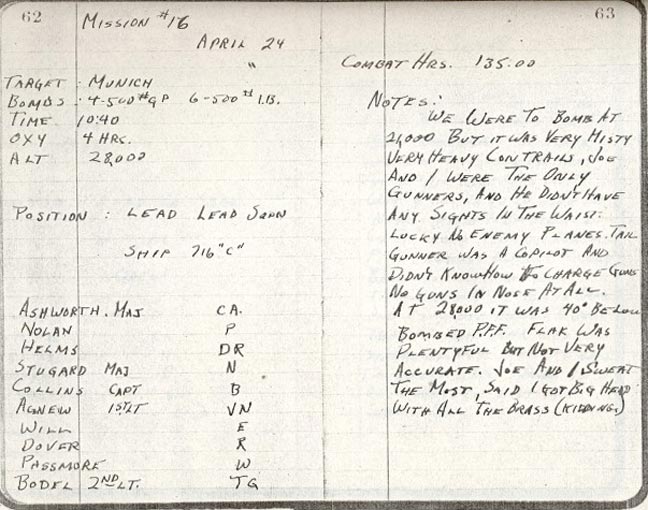 62
MISSION #16
APRIL 24
"
TARGET : MUNICH
BOMBS : 4-500# GP 6-500# I.B.
TIME 10:40
OXY 4 HRS.
ALT 28,000
POSITION : LEAD LEAD SQDN
SHIP 716 "C"
ASHWORTH. MAJ CA.
NOLAN P
HELMS DR
STUGARD MAJ N
COLLINS CAPT B
AGNEW 1ST LT VN
WILL E
DOVER R
PASSMORE W
BODEL 2ND LT. TG
63
COMBAT HRS. 135.00
NOTES:
WE WERE TO BOMB AT
21,000 BUT IT WAS VERY MISTY
VERY HEAVY CONTRAILS, JOE
AND I WERE THE ONLY
GUNNERS, AND HE DIDN'T HAVE
ANY SIGHTS IN THE WAIST.
LUCKY NO ENEMY PLANES. TAIL
GUNNER WAS A COPILOT AND
DIDN'T KNOW HOW TO CHARGE GUNS
NO GUNS IN NOSE AT ALL.
AT 28,000 IT WAS 40° BELOW
BOMBED P.F.F. FLAK WAS
PLENTYFUL BUT NOT VERY
ACCURATE. JOE AND I SWEAT
THE MOST, SAID I GOT BIG HEAD
WITH ALL THE BRASS (KIDDING.)